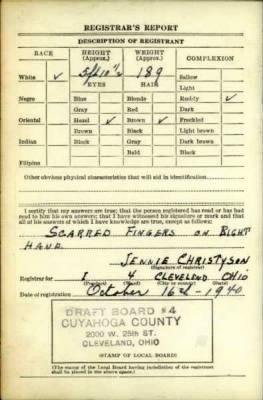 REGISTRAR'S REPORT
DESCRIPTION OF REGISTRANT
RACE HEIGHT (Approx.) WEIGHT (Approx.) COMPLEXION
White ✓ 5 ft 10 ½ 189 Sallow
EYES HAIR Light
Negro Blue Blonde Ruddy ✓
Gray Red Dark
Oriental Hazel ✓ Brown ✓ Freckled
Brown Black Light brown
Indian Black Gray Dark brown
Bald Black
Filipino
Other obvious physical characteristics that will aid in identification
I certify that my answers are true; that the person registered has read or has had
read to him his own answers; that I have witnessed his signature or mark and that
all of his answers of which I have knowledge are true, except as follows:
SCARRED FINGERS ON RIGHT
HAND
JENNIE CHRISTYSON
(Signature of registrar)
Registrar for 4 CLEVELAND OHIO
(Precinct) (Ward) (City or county) (State)
Date of registration October 16th - 1940
DRAFT BOARD #4
CUYAHOGA COUNTY
2002 W. 25th ST.
CLEVELAND, OHIO
(STAMP OF LOCAL BOARD)
(The stamp of the Local Board having jurisdiction of the registrant
shall be placed in the above space.)